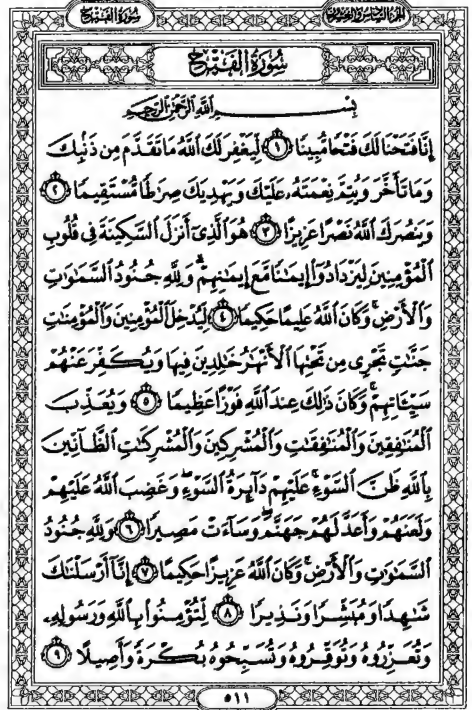 سُورَةُ الفَتْحِ
الجزء السادس والعشرون
سُورَةُ الفَتْحِ
بِسْمِ اللَّهِ الرَّحْمَٰنِ الرَّحِيمِ
إِنَّا فَتَحْنَا لَكَ فَتْحًا مُّبِينًا ١ لِّيَغْفِرَ لَكَ اللَّهُ مَا تَقَدَّمَ مِن ذَنۢبِكَ
وَمَا تَأَخَّرَ وَيُتِمَّ نِعْمَتَهُۥ عَلَيْكَ وَيَهْدِيَكَ صِرَٰطًا مُّسْتَقِيمًا ٢
وَيَنصُرَكَ اللَّهُ نَصْرًا عَزِيزًا ٣ هُوَ الَّذِىٓ أَنزَلَ السَّكِينَةَ فِى قُلُوبِ
الْمُؤْمِنِينَ لِيَزْدَادُوٓا۟ إِيمَٰنًا مَّعَ إِيمَٰنِهِمْ ۗ وَلِلَّهِ جُنُودُ السَّمَٰوَٰتِ
وَالْأَرْضِ ۚ وَكَانَ اللَّهُ عَلِيمًا حَكِيمًا ٤ لِّيُدْخِلَ الْمُؤْمِنِينَ وَالْمُؤْمِنَٰتِ
جَنَّٰتٍ تَجْرِى مِن تَحْتِهَا الْأَنْهَٰرُ خَٰلِدِينَ فِيهَا وَيُكَفِّرَ عَنْهُمْ
سَيِّـَٔاتِهِمْ ۚ وَكَانَ ذَٰلِكَ عِندَ اللَّهِ فَوْزًا عَظِيمًا ٥ وَيُعَذِّبَ
الْمُنَٰفِقِينَ وَالْمُنَٰفِقَٰتِ وَالْمُشْرِكِينَ وَالْمُشْرِكَٰتِ الظَّآنِّينَ
بِاللَّهِ ظَنَّ السَّوْءِ ۚ عَلَيْهِمْ دَآئِرَةُ السَّوْءِ ۖ وَغَضِبَ اللَّهُ عَلَيْهِمْ
وَلَعَنَهُمْ وَأَعَدَّ لَهُمْ جَهَنَّمَ ۖ وَسَآءَتْ مَصِيرًا ٦ وَلِلَّهِ جُنُودُ
السَّمَٰوَٰتِ وَالْأَرْضِ ۚ وَكَانَ اللَّهُ عَزِيزًا حَكِيمًا ٧ إِنَّآ أَرْسَلْنَٰكَ
شَٰهِدًا وَمُبَشِّرًا وَنَذِيرًا ٨ لِّتُؤْمِنُوا۟ بِاللَّهِ وَرَسُولِهِۦ
وَتُعَزِّرُوهُ وَتُوَقِّرُوهُ وَتُسَبِّحُوهُ بُكْرَةً وَأَصِيلًا ٩
٥١١